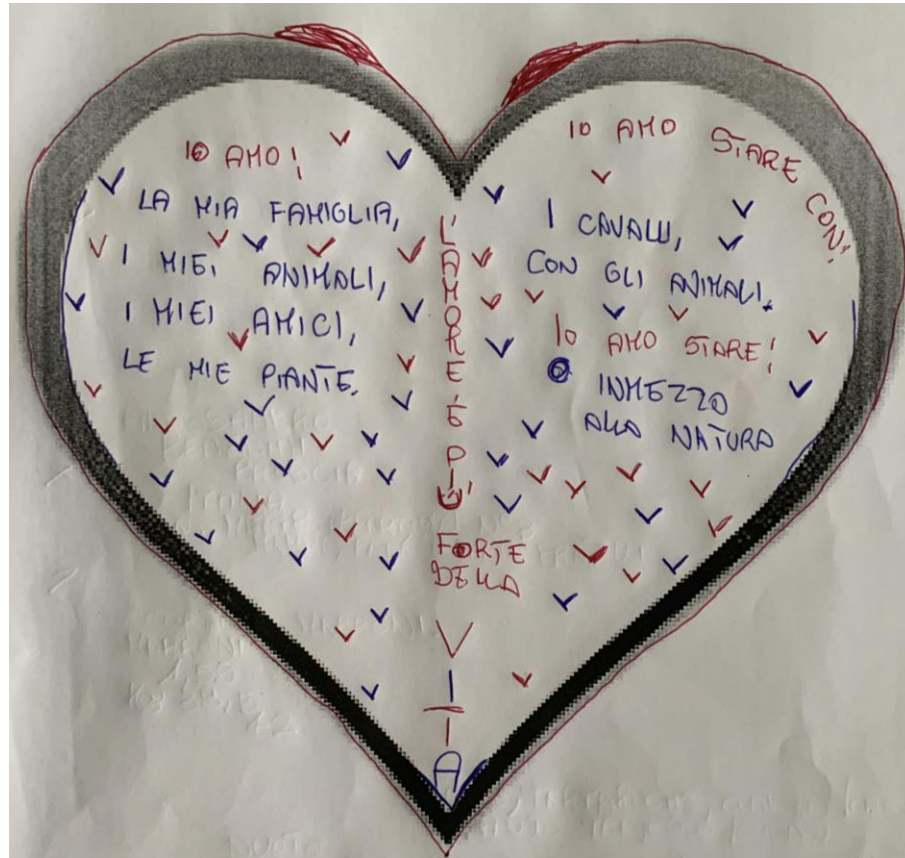 IO AMO!
LA MIA FAMIGLIA,
I MIEI ANIMALI,
I MIEI AMICI,
LE MIE PIANTE.
L'AMORE É PIÙ
FORTE
DELLA
VITA
IO AMO STARE CON!
I CAVALLI,
CON GLI ANIMALI,
IO AMO STARE!
INMEZZO
ALLA NATURA